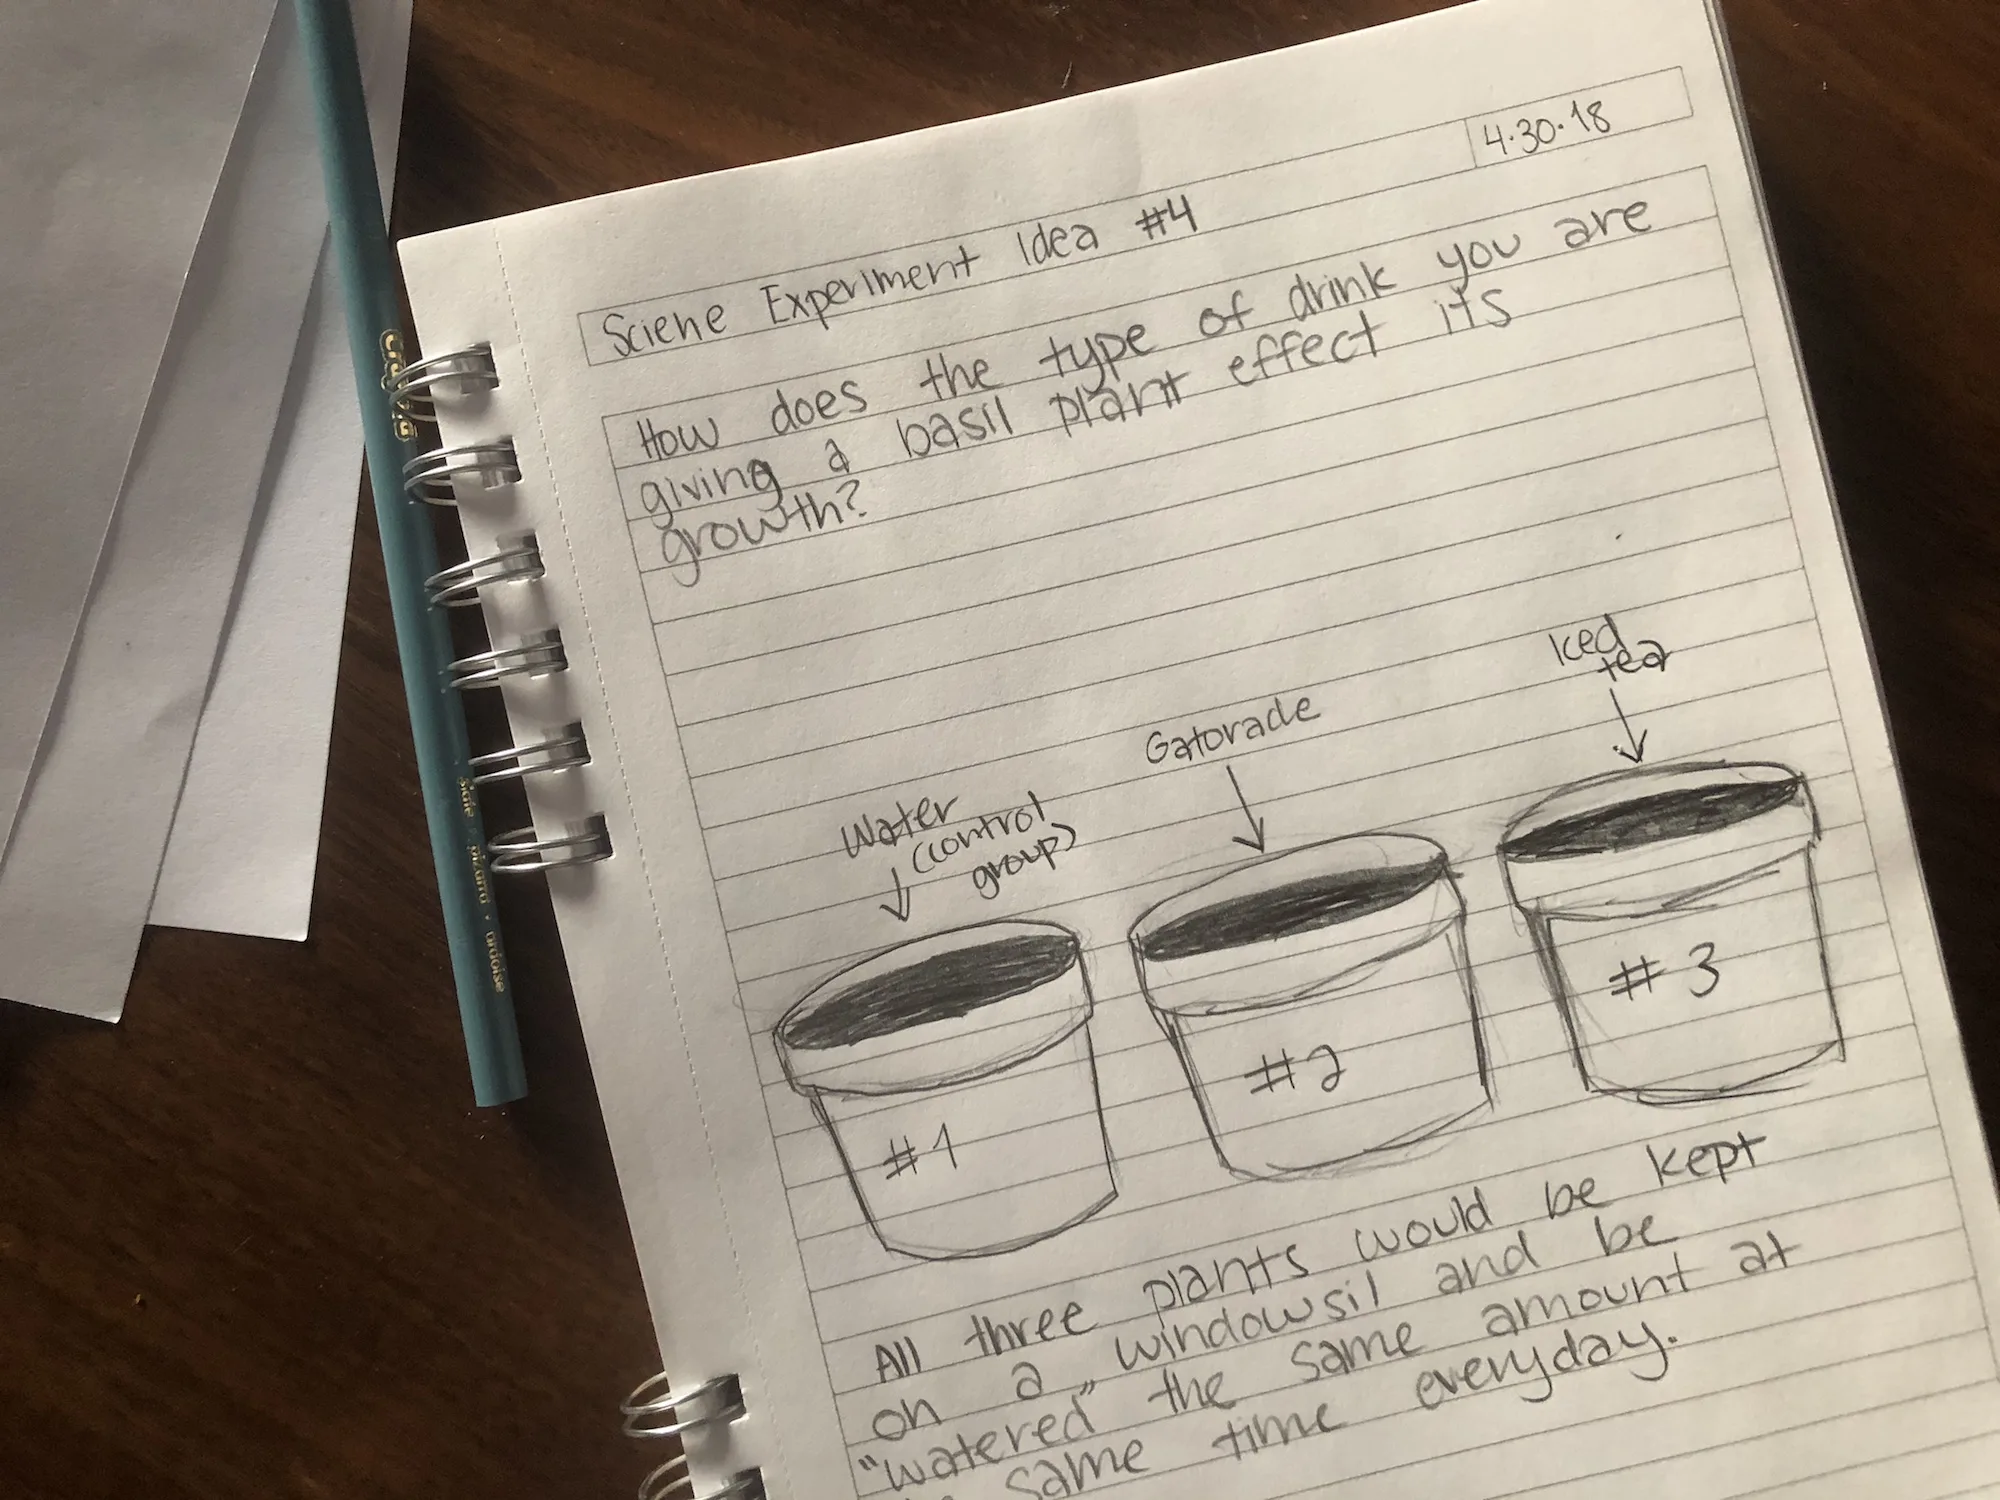 4.30.18
Sciene Experiment Idea #4
How does the type of drink you are
giving a basil plant effect its
growth?
Iced
tea
Gatorade
Water
(control
group)
#1
#2
#3
All three plants would be kept
on a windowsil and be
"watered" the same amount at
same time everyday.
Crayola